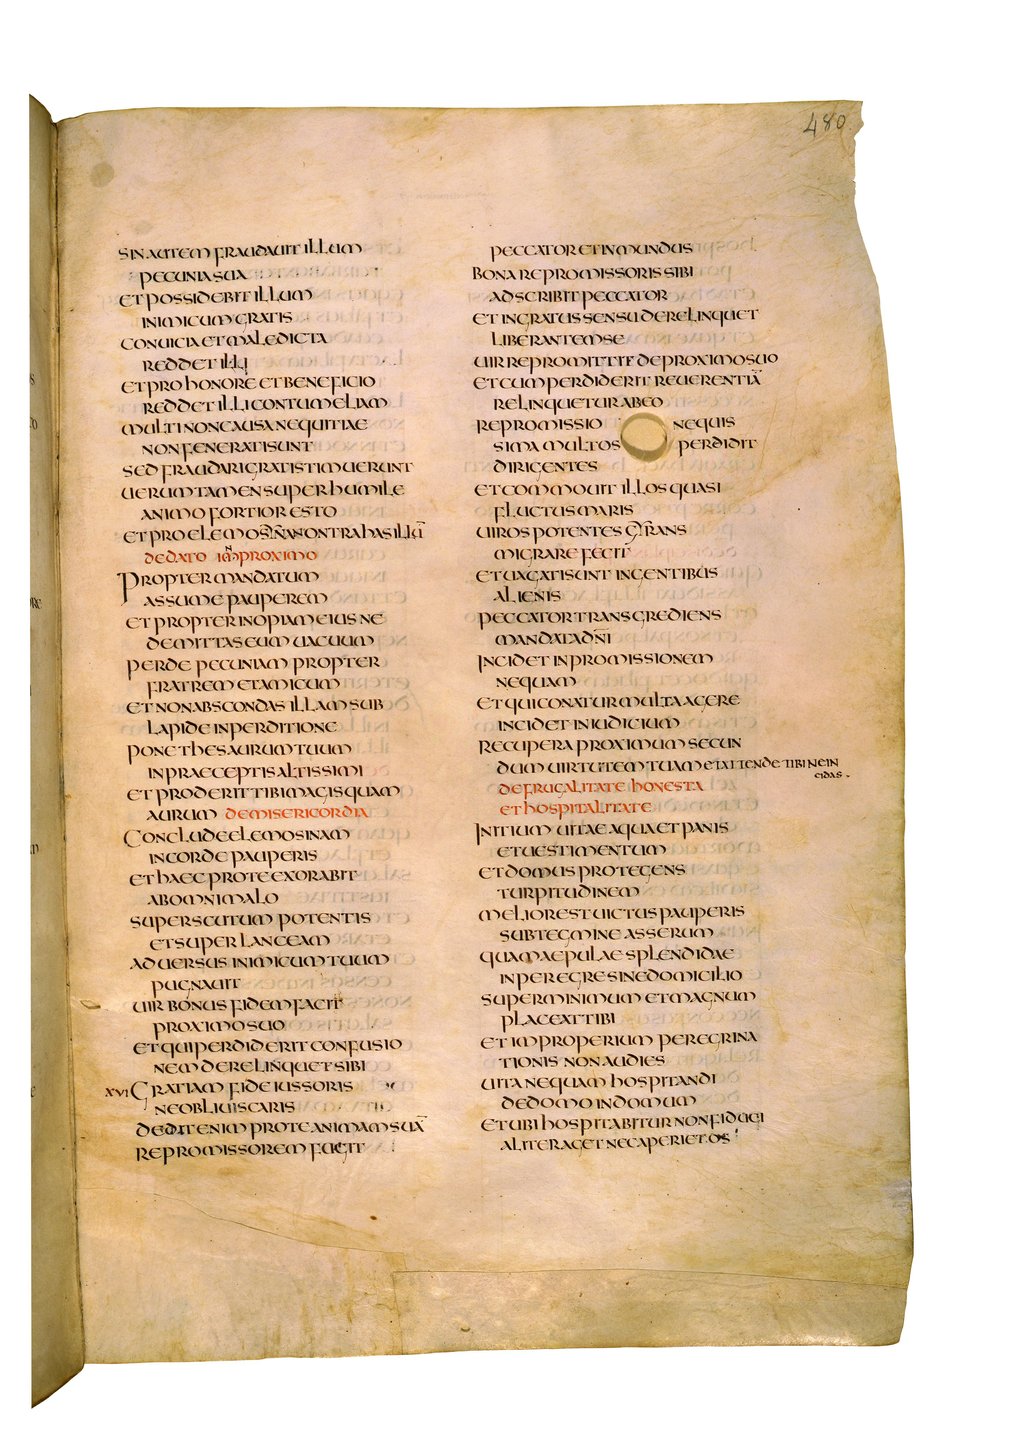 480
SIN AUTEM FRAUDAUIT ILLUM
PECUNIA SUA
ET POSSIDEBIT ILLUM
INIMICUM GRATIS
CONUICIA ET MALEDICTA
REDDET ILLI
ET PRO HONORE ET BENEFICIO
REDDET ILLI CONTUMELIAM
MULTI NON CAUSA NEQUITIAE
NON FENERATI SUNT
SED FRAUDARI GRATIS TIMUERUNT
UERUMTAMEN SUPER HUMILE
ANIMO FORTIOR ESTO
ET PRO ELEMOSÑA NON TRAHAS ILLŪ
DE DATO IN PROXIMO
PROPTER MANDATUM
ASSUME PAUPEREM
ET PROPTER INOPIAM EIUS NE
DEMITTAS EUM UACUUM
PERDE PECUNIAM PROPTER
FRATREM ET AMICUM
ET NON ABSCONDAS ILLAM SUB
LAPIDE IN PERDITIONE
PONE THESAURUM TUUM
IN PRAECEPTIS ALTISSIMI
ET PRODERIT TIBI MAGIS QUAM
AURUM DE MISERICORDIA
CONCLUDE ELEMOSINAM
IN CORDE PAUPERIS
ET HAEC PRO TE EXORABIT
AB OMNI MALO
SUPER SCUTUM POTENTIS
ET SUPER LANCEAM
ADUERSUS INIMICUM TUUM
PUGNAUIT
UIR BONUS FIDEM FACIT
PROXIMO SUO
ET QUI PERDIDERIT CONFUSIO
NEM DERELINQUET SIBI
XVI GRATIAM FIDEIUSSORIS
NE OBLIUISCARIS
DEDIT ENIM PRO TE ANIMAM SUĀ
REPROMISSOREM FUGIT
PECCATOR ET INMUNDUS
BONA REPROMISSORIS SIBI
ADSCRIBIT PECCATOR
ET INGRATUS SENSU DERELINQUET
LIBERANTEM SE
UIR REPROMITTIT DE PROXIMO SUO
ET CUM PERDIDERIT REUERENTIĀ
RELINQUETUR AB EO
REPROMISSIO NEQUIS
SIMA MULTOS PERDIDIT
DIRIGENTES
ET COMMOUIT ILLOS QUASI
FLUCTUS MARIS
UIROS POTENTES GYRANS
MIGRARE FECIT
ET UAGATI SUNT IN GENTIBUS
ALIENIS
PECCATOR TRANSGREDIENS
MANDATA DÑI
INCIDET IN PROMISSIONEM
NEQUAM
ET QUI CONATUR MULTA AGERE
INCIDET IN IUDICIUM
RECUPERA PROXIMUM SECUN
DUM UIRTUTEM TUAM ET ATTENDE TIBI NE IN
CIDAS
DE FRUGALITATE HONESTA
ET HOSPITALITATE
INITIUM UITAE AQUA ET PANIS
ET UESTIMENTUM
ET DOMUS PROTEGENS
TURPITUDINEM
MELIOR EST UICTUS PAUPERIS
SUB TEGMINE ASSERUM
QUAM AEPULAE SPLENDIDAE
IN PEREGRE SINE DOMICILIO
SUPER MINIMUM ET MAGNUM
PLACEAT TIBI
ET IMPROPERIUM PEREGRINA
TIONIS NON AUDIES
UITA NEQUAM HOSPITANDI
DE DOMO IN DOMUM
ET UBI HOSPITABITUR NON FIDUCI
ALITER AGET NEC APERIET OS